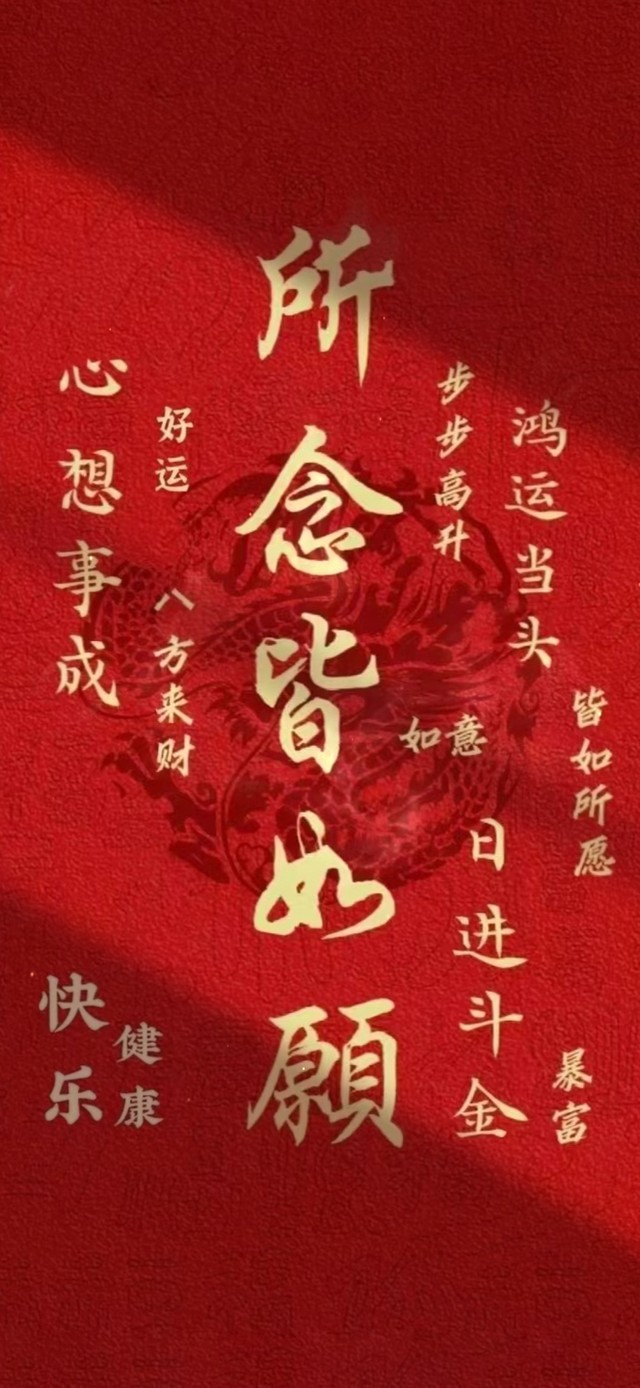 所念皆如願
心想事成
好运
八方来财
步步高升
鸿运当头
如意
皆如所愿
日进斗金
暴富
快乐
健康